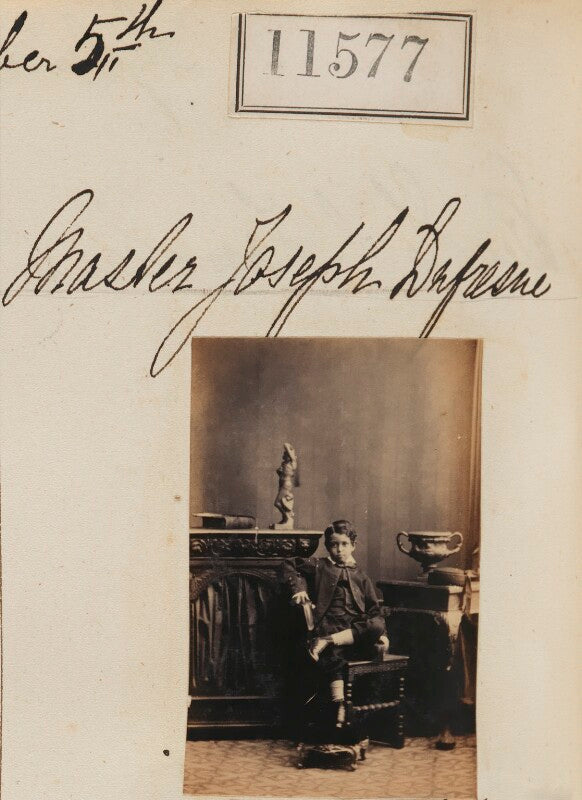 ber 5th
11577
Master Joseph Dufresne